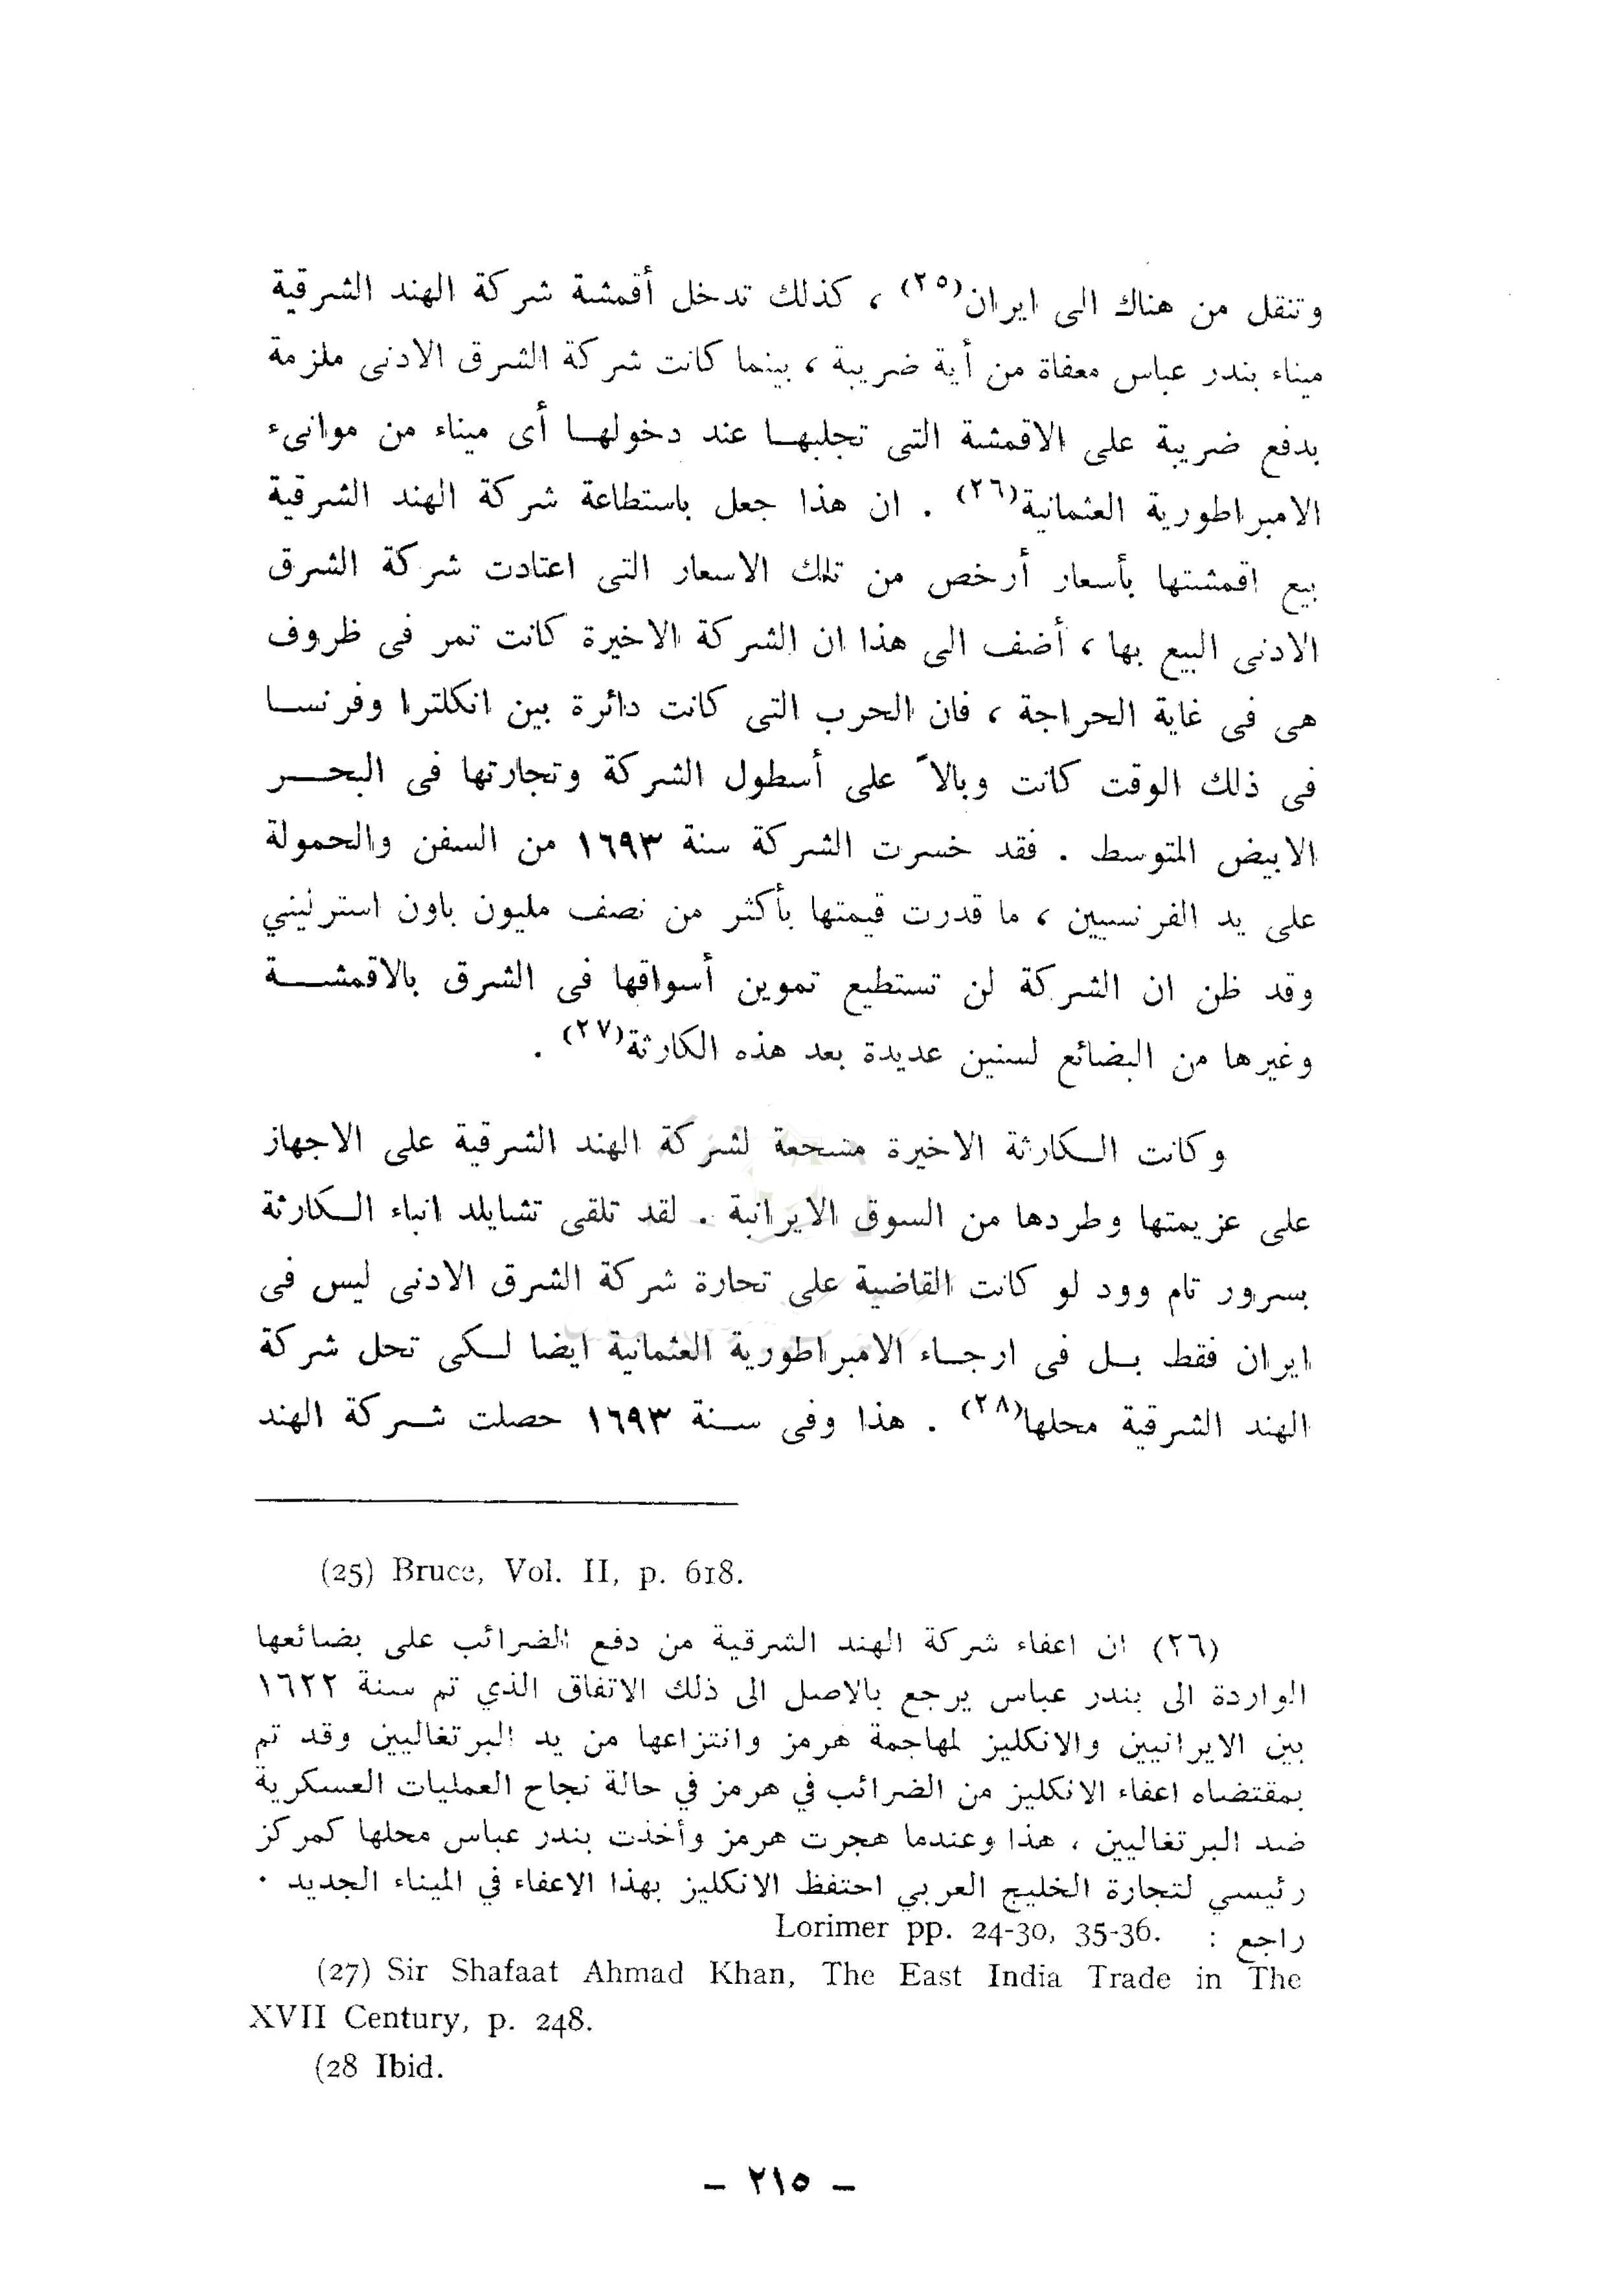 وتنقل من هناك الى ايران(٢٥) ، كذلك تدخل أقمشة شركة الهند الشرقية
ميناء بندر عباس معفاة من أية ضريبة ، بينما كانت شركة الشرق الادنى ملزمة
بدفع ضريبة على الاقمشة التى تجلبهــا عند دخولهــا أى ميناء من موانىء
الامبراطورية العثمانية(٢٦) . ان هذا جعل باستطاعة شركة الهند الشرقية
بيع اقمشتها بأسعار أرخص من تلك الاسعار التى اعتادت شركة الشرق
الادنى البيع بها ، أضف الى هذا ان الشركة الاخيرة كانت تمر فى ظروف
هى فى غاية الحراجة ، فان الحرب التى كانت دائرة بين انكلترا وفرنســا
فى ذلك الوقت كانت وبالاً على أسطول الشركة وتجارتها فى البحــر
الابيض المتوسط . فقد خسرت الشركة سنة ١٦٩٣ من السفن والحمولة
على يد الفرنسيين ، ما قدرت قيمتها بأكثر من نصف مليون باون استرليني
وقد ظن ان الشركة لن تستطيع تموين أسواقها فى الشرق بالاقمشــة
وغيرها من البضائع لسنين عديدة بعد هذه الكارثة(٢٧) .
وكانت الــكارثة الاخيرة مشجعة لشركة الهند الشرقية على الاجهاز
على عزيمتها وطردها من السوق الايرانية . لقد تلقى تشايلد انباء الــكارثة
بسرور تام وود لو كانت القاضية على تجارة شركة الشرق الادنى ليس فى
ايران فقط بــل فى ارجــاء الامبراطورية العثمانية ايضا لــكى تحل شركة
الهند الشرقية محلها(٢٨) . هذا وفى ســنة ١٦٩٣ حصلت شــركة الهند
(25) Bruce, Vol. II, p. 618.
(٢٦) ان اعفاء شركة الهند الشرقية من دفع الضرائب على بضائعها
الواردة الى بندر عباس يرجع بالاصل الى ذلك الاتفاق الذي تم سنة ١٦٢٢
بين الايرانيين والانكليز لمهاجمة هرمز وانتزاعها من يد البرتغاليين وقد تم
بمقتضاه اعفاء الانكليز من الضرائب في هرمز في حالة نجاح العمليات العسكرية
ضد البرتغاليين ، هذا وعندما هجرت هرمز وأخذت بندر عباس محلها كمركز
رئيسي لتجارة الخليج العربي احتفظ الانكليز بهذا الاعفاء في الميناء الجديد .
راجع : Lorimer pp. 24-30, 35-36.
(27) Sir Shafaat Ahmad Khan, The East India Trade in The
XVII Century, p. 248.
(28 Ibid.
– ٢١٥ –